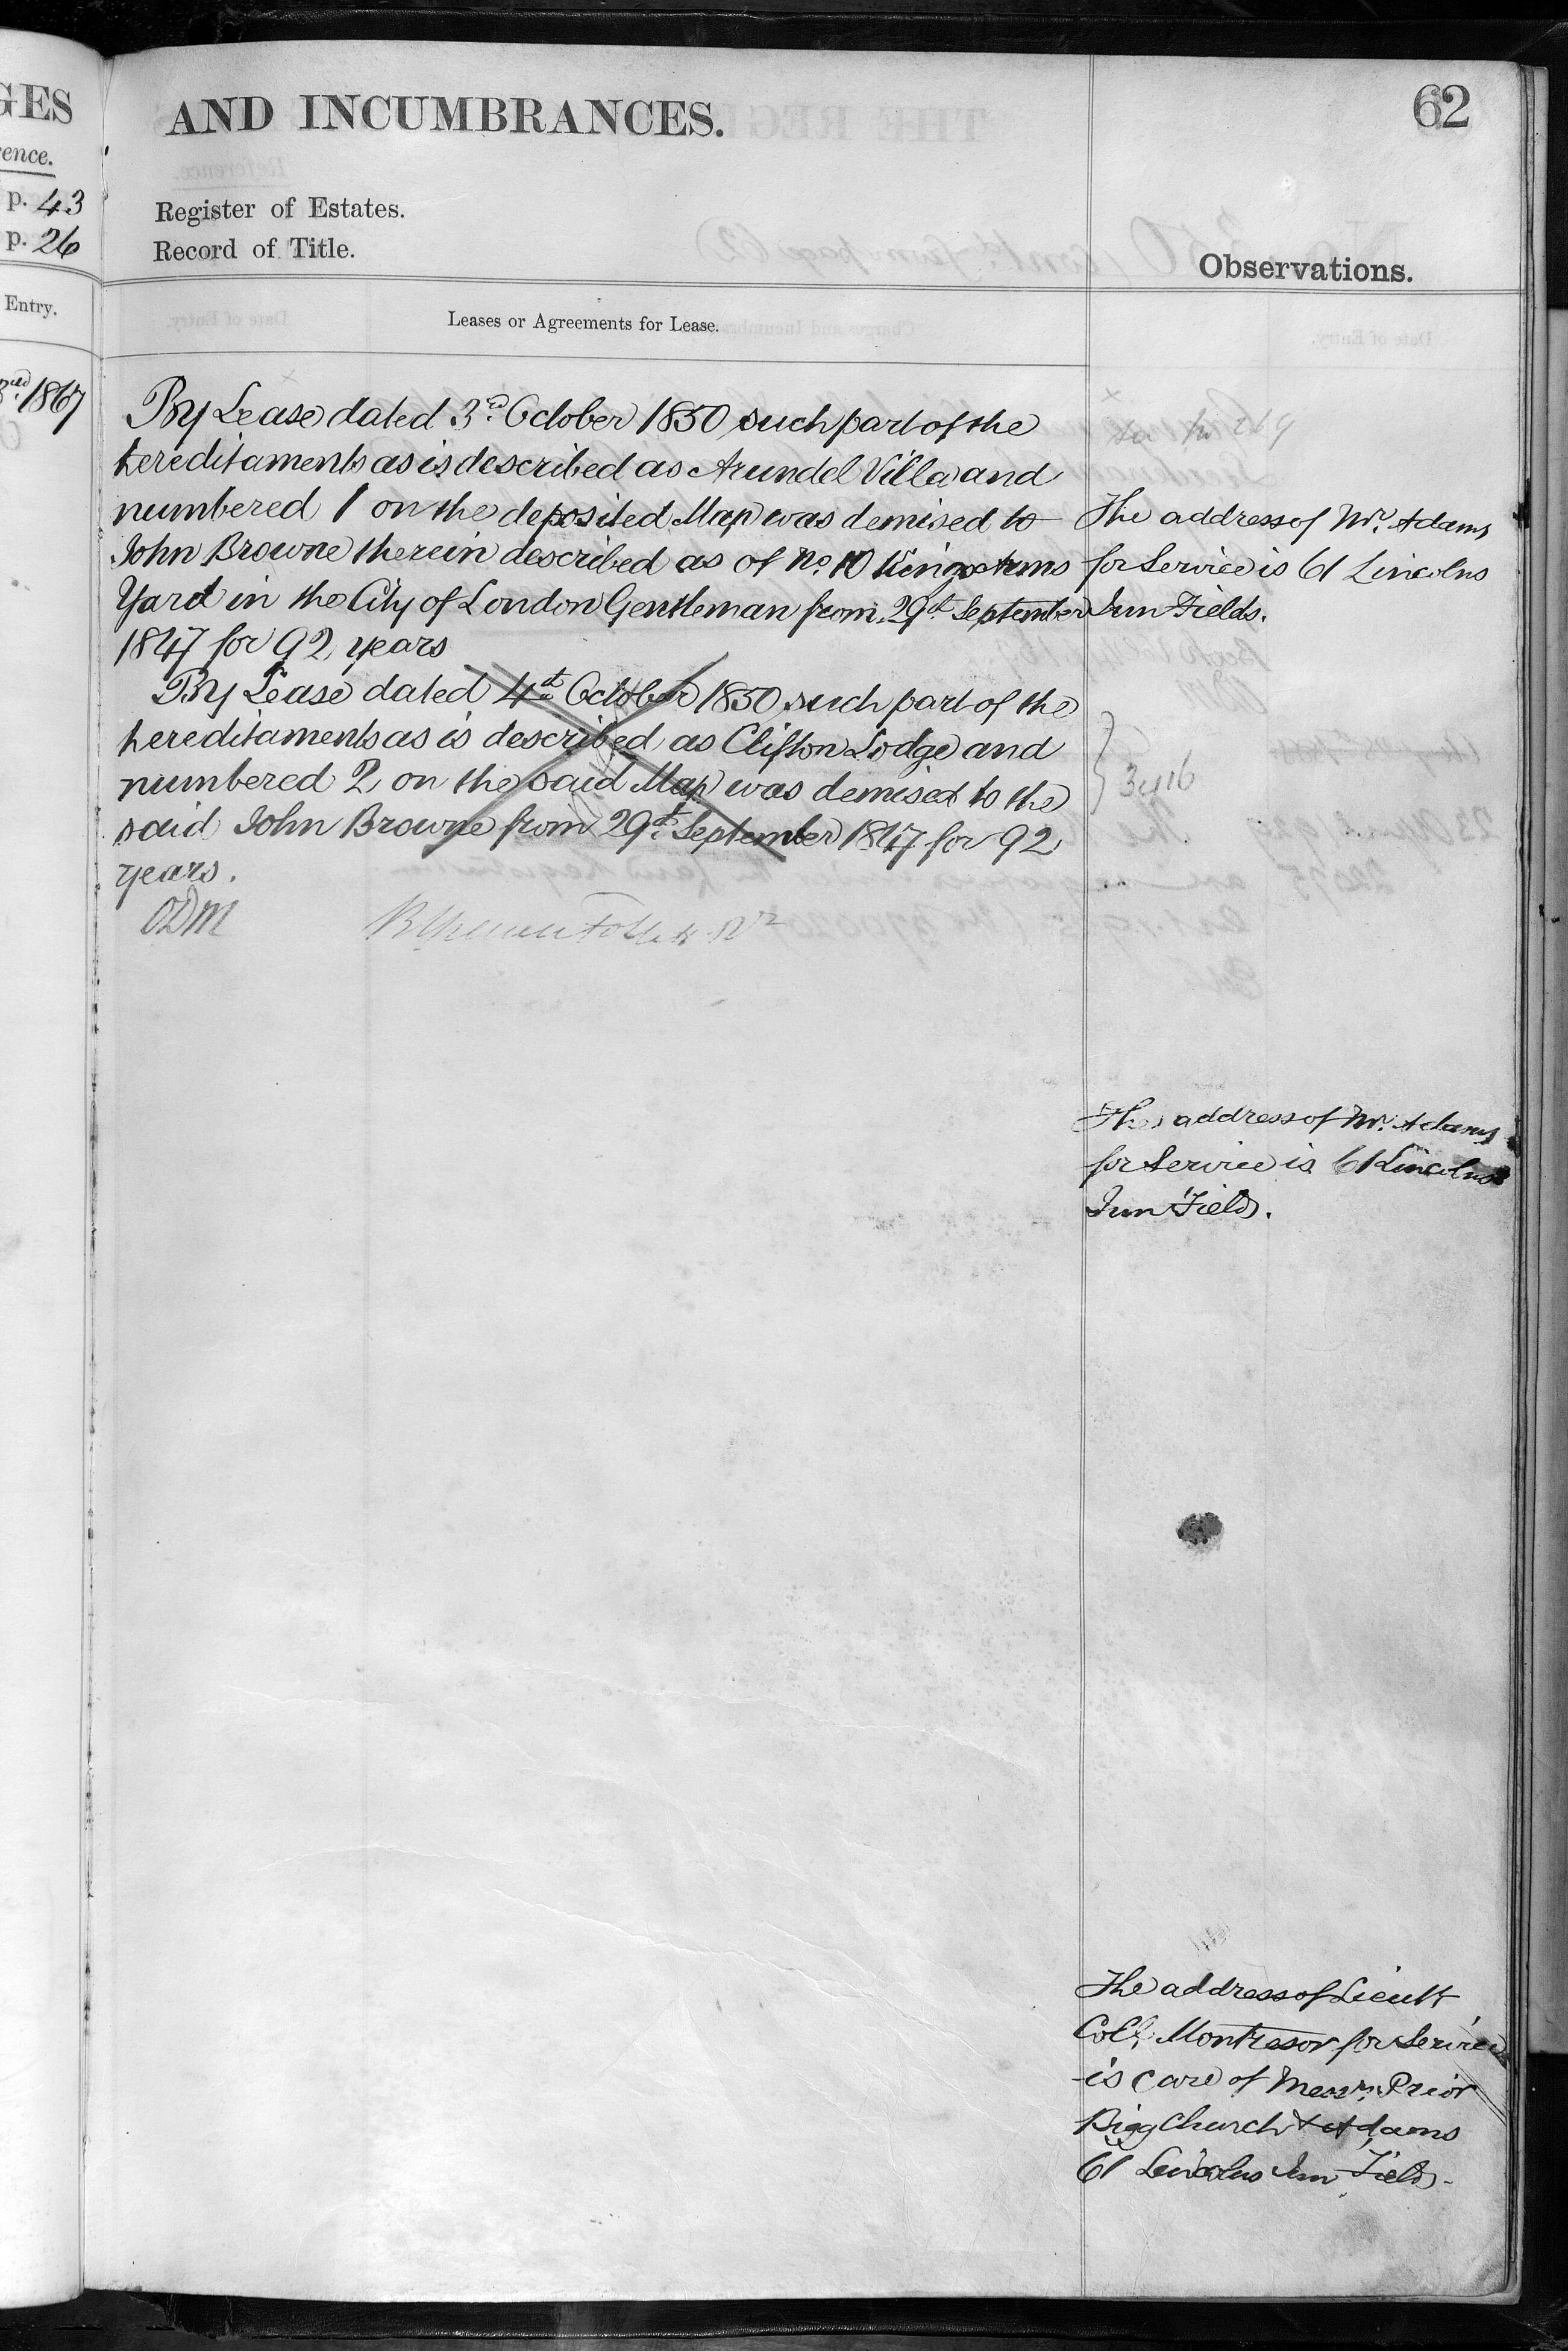 GES
ence.
p. 43
p. 26
Entry.
3rd 1867
AND INCUMBRANCES.
62
Register of Estates.
Record of Title.
Observations.
Leases or Agreements for Lease.
By Lease dated 3d. October 1850 such part of the
hereditaments as is described as Arundel Villa and
numbered 1 on the deposited Map was demised to
John Browne therein described as of No. 10 Kings Arms
Yard in the City of London Gentleman from 29th September
1847 for 92 years
By Lease dated 4th October 1850 such part of the
hereditaments as is described as Clifton Lodge and
numbered 2 on the said Map was demised to the
said John Browne from 29th September 1847 for 92
years.
ODM
The address of Mr. Adams
for Service is 61 Lincolns
Inn Fields.
The address of Mr. Adams
for Service is 61 Lincolns
Inn Fields.
The address of Lieutt
Coll. Montresor for Service
is care of Messrs. Prior
Bigg Church & Adams
61 Lincolns Inn Fields.